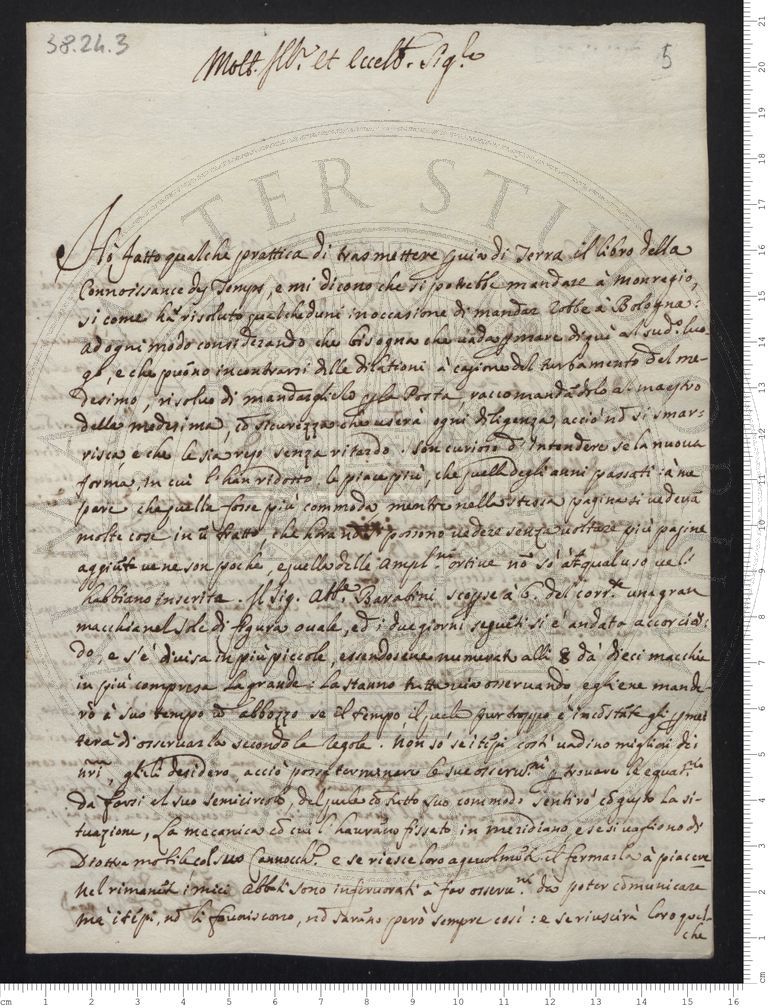 38.24.3
5
Molt. Ill.re et Eccell.te Sig.re
Hò fatto qualche prattica di trasmettere per via di Terra il libro della
Connoissance des Temps, e mi dicono che si potrebbe mandare à Monregio,
si come hà risoluto qualcheduni in occasione di mandar robbe à Bologna:
ad ogni modo considerando che bisogna che vada per mare di quì al sud.o luo-
go, e che puōno incontrarsi delle dilationi à cagione del turbamento del me-
desimo, risolvo di mandarglielo per la Posta, raccomandādolo al maestro
della medesima, cō sicurezza che userà ogni diligenza, acciò nō si smar-
risca e che le sia reso senza ritardo. Son curioso d'intendere se la nuova
forma, in cui l'han ridotto, le piace più, che quella degli anni passati: à me
pare che quella fosse più commoda, mentre nella stessa pagina si vedeva
molte cose in ū tratto, che hora nō si possono vedere senza voltare più pagine
aggiūte ve ne son poche, e quella delle Ampl.ni ortive nō sò à qual uso ve l'
habbiano inserita. Il Sig. Abb.e Barabini scoprse à 6. del corr.te una gran
macchia nel sole di figura ovale, ed i due giorni seguēti si è andata accorciā-
do, e s'è divisa in più piccole, essendosene numerat alli 8 da dieci macchie
in più compresa la grande: la stanno tutta via osservando e gliene mande-
rò à suo tempo ū abbozzo se il tempo il quale pur troppo è incōstāte gli permet
terà d'osservarla secondo le regole. Non sò se i tēpi costì vadino migliori dei
nr̄i, gli li desidero, acciò possa terminare le sue osserv.ni per trovare le equat.ni
da farsi al suo semicircolo, del quale cō tutto suo commodo sentirò cō gusto la si-
tuazione, la mecanica cō cui l'haurāno fissato in meridiano, e se si vagliono di
Diottra mobile col suo Cannocch.e, e se riesce loro agevolm.te il fermarla à piacere
Nel rimanēte i miei abbati sono infervorati à far osserv.ni da poter comunicare
mà i tēpi, nō li favoriscono, nō sarāno però sempre così: e se riuscirà loro qual-
che